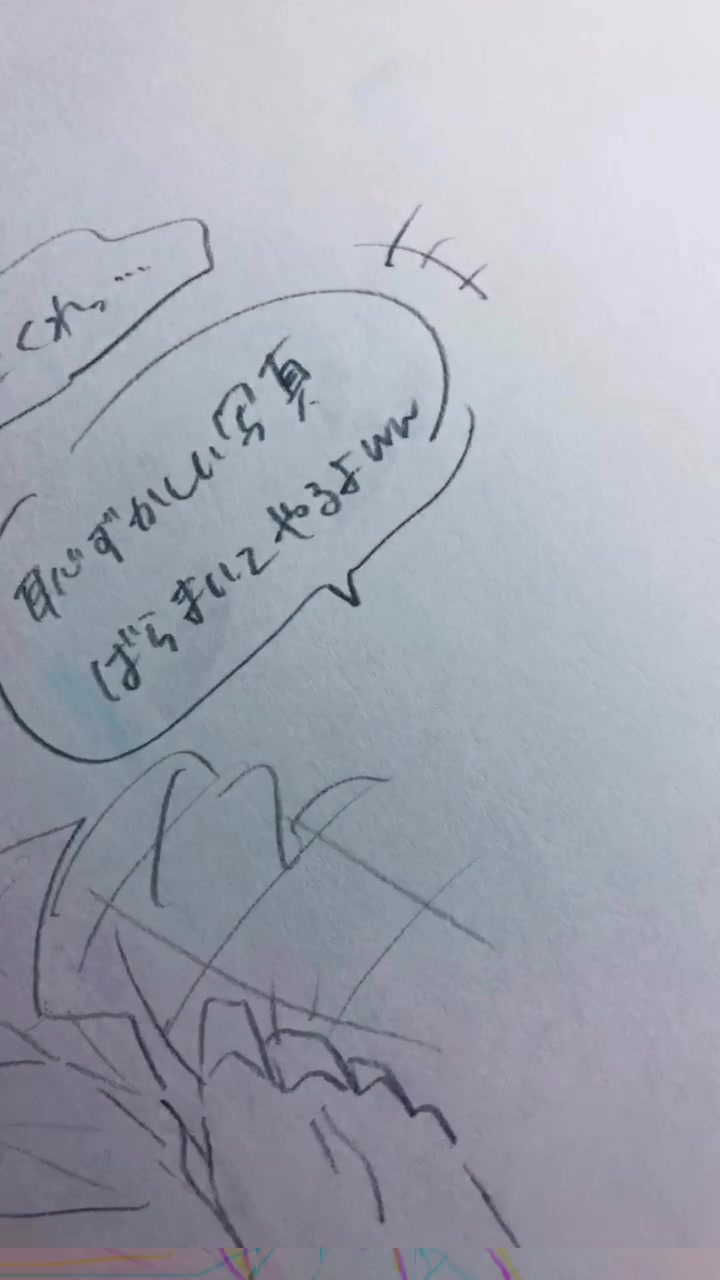 くれっ…
恥ずかしい写真
ばらまいてやるよww